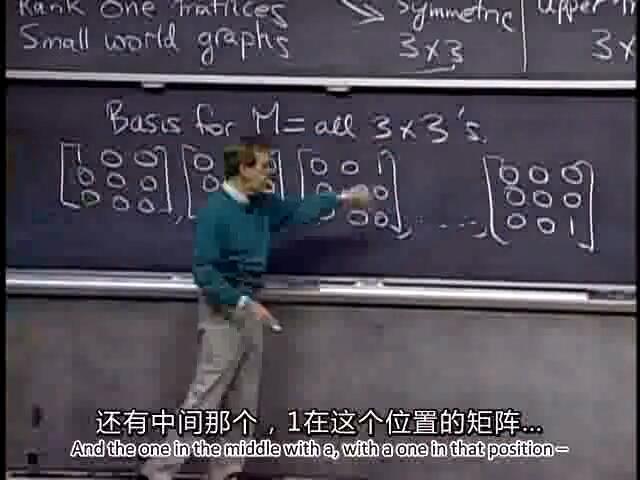 Rank One matrices
Small world graphs
symmetric
3x3
Upper
3x
Basis for M = all 3x3's.
[1 0 0] [0 0 1] [0 0 0]
[0 0 0] [0 0 0]
[0 0 0] 0 0] [0 0 1]
还有中间那个，1在这个位置的矩阵...
And the one in the middle with a, with a one in that position –